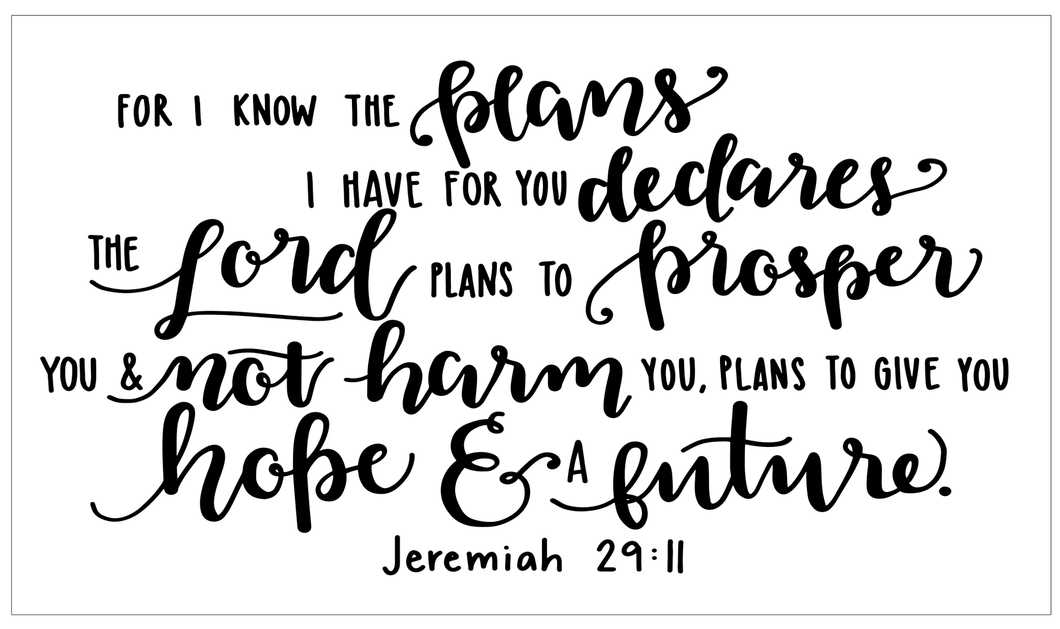 FOR I KNOW THE plans
I HAVE FOR YOU declares
THE Lord PLANS TO prosper
YOU & not harm YOU, PLANS TO GIVE YOU
hope & A future.
Jeremiah 29:11